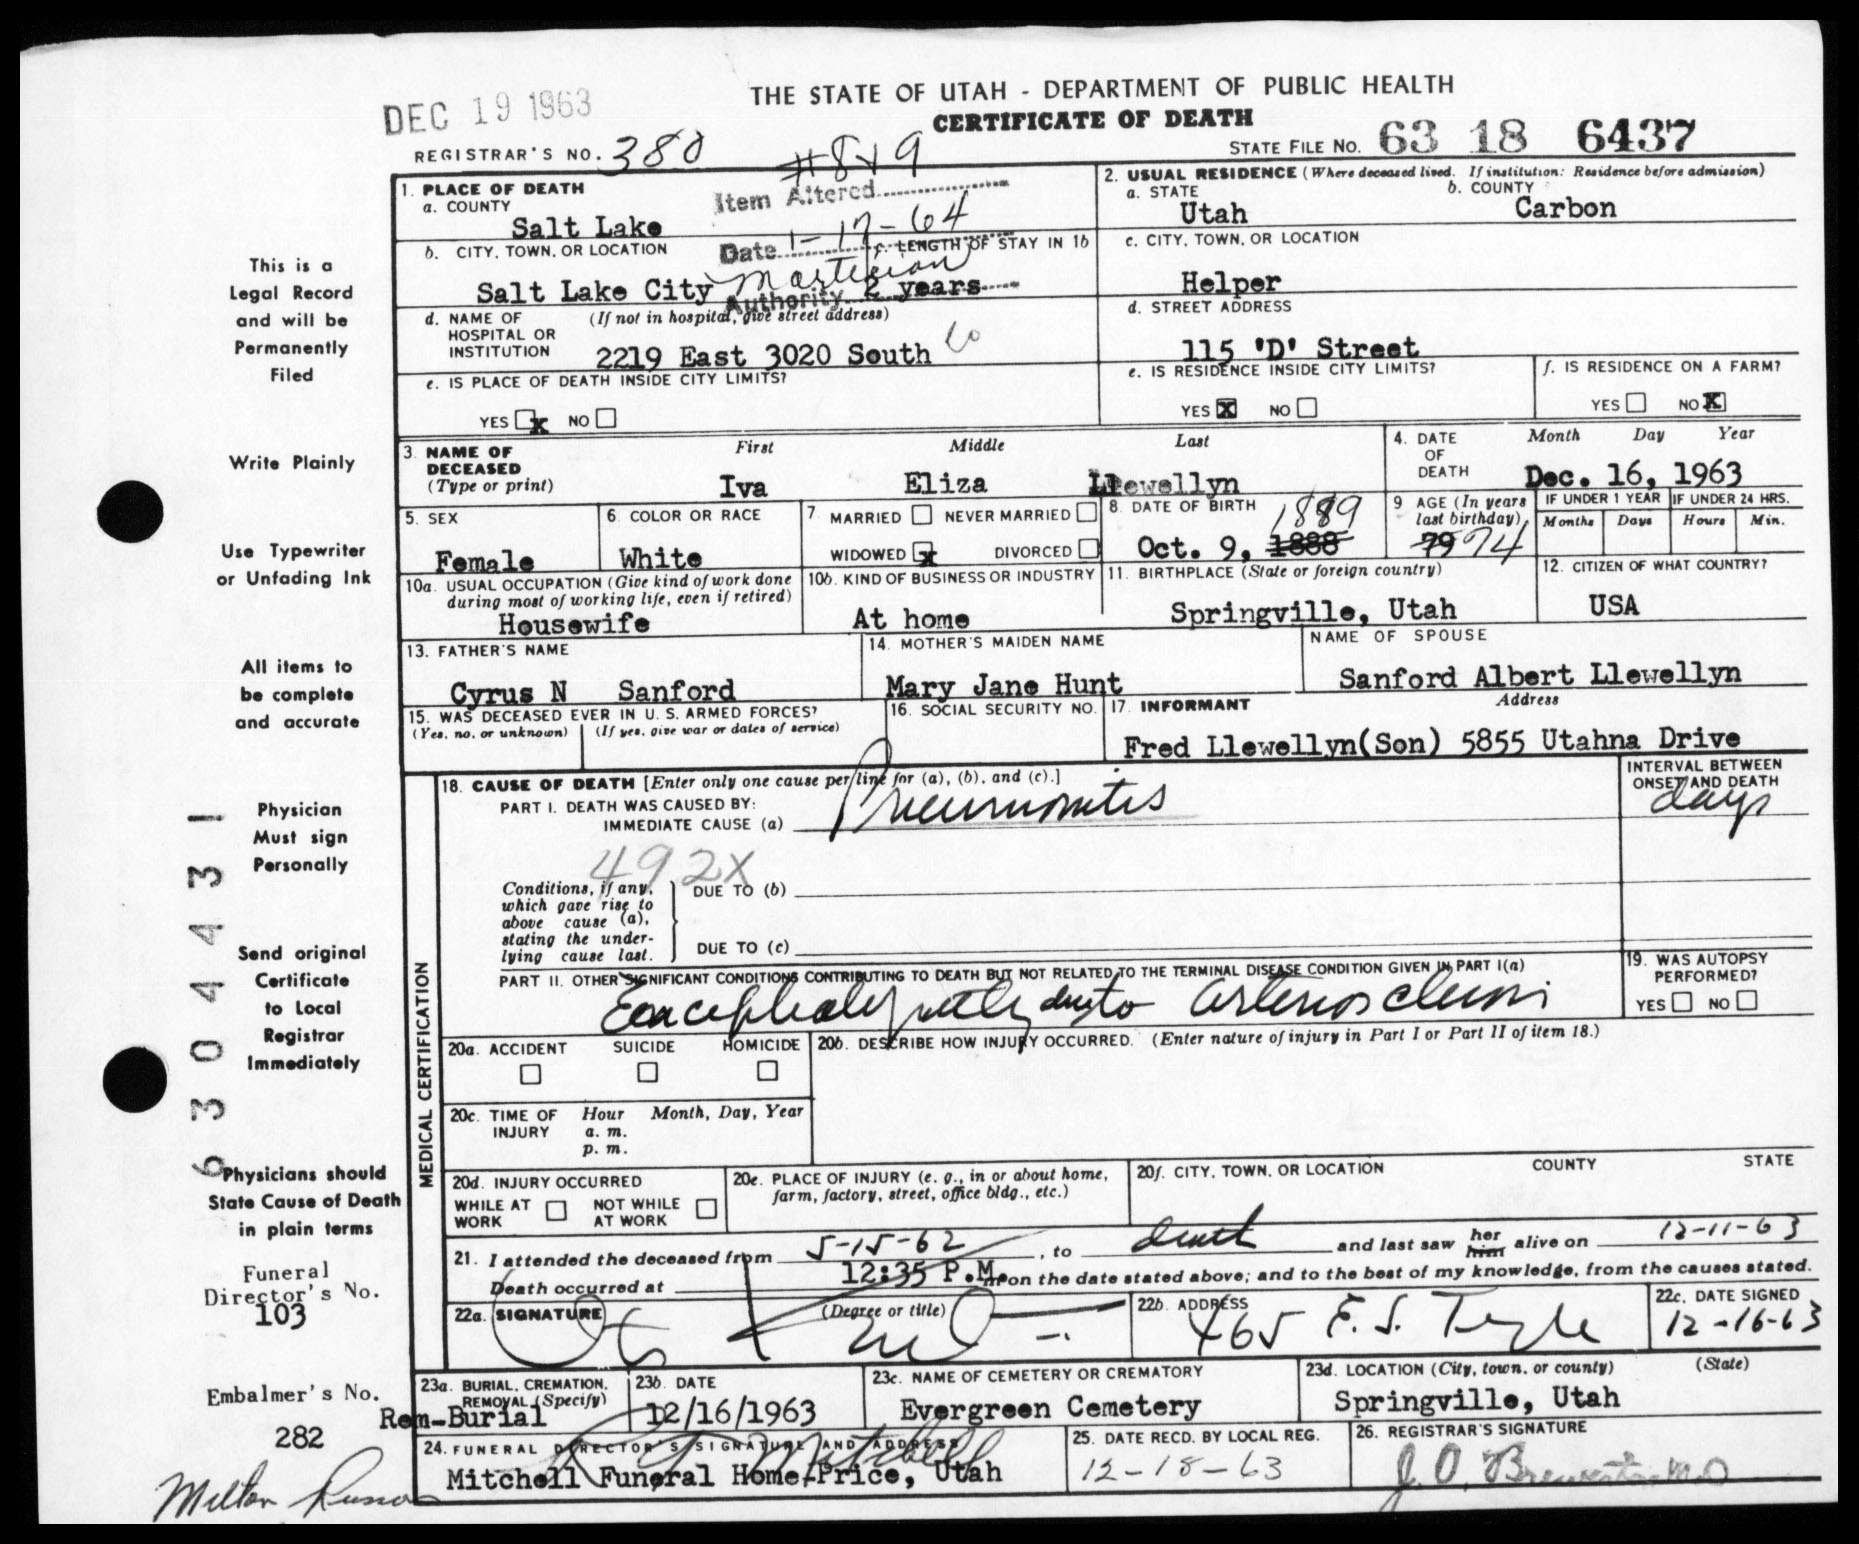 THE STATE OF UTAH - DEPARTMENT OF PUBLIC HEALTH
DEC 19 1963
CERTIFICATE OF DEATH
REGISTRAR'S NO. 380
STATE FILE NO. 63 18 6437
#8+9
Item Altered
Date 1-17-64
Authority Mortician
1. PLACE OF DEATH
a. COUNTY
Salt Lake
b. CITY, TOWN, OR LOCATION
Salt Lake City
c. LENGTH OF STAY IN 1b
2 years
d. NAME OF HOSPITAL OR INSTITUTION
(If not in hospital, give street address)
2219 East 3020 South
e. IS PLACE OF DEATH INSIDE CITY LIMITS?
YES x NO
2. USUAL RESIDENCE (Where deceased lived. If institution: Residence before admission)
a. STATE
Utah
b. COUNTY
Carbon
c. CITY, TOWN, OR LOCATION
Helper
d. STREET ADDRESS
115 'D' Street
e. IS RESIDENCE INSIDE CITY LIMITS?
YES X NO
f. IS RESIDENCE ON A FARM?
YES NO X
3. NAME OF DECEASED
(Type or print)
First Middle Last
Iva Eliza Llewellyn
4. DATE OF DEATH
Month Day Year
Dec. 16, 1963
5. SEX
Female
6. COLOR OR RACE
White
7 MARRIED NEVER MARRIED
WIDOWED x DIVORCED
8. DATE OF BIRTH
Oct. 9, 1888 1889
9 AGE (In years last birthday)
79 74
IF UNDER 1 YEAR
Months Days
IF UNDER 24 HRS.
Hours Min.
10a. USUAL OCCUPATION (Give kind of work done during most of working life, even if retired)
Housewife
10b. KIND OF BUSINESS OR INDUSTRY
At home
11. BIRTHPLACE (State or foreign country)
Springville, Utah
12. CITIZEN OF WHAT COUNTRY?
USA
13. FATHER'S NAME
Cyrus N Sanford
14. MOTHER'S MAIDEN NAME
Mary Jane Hunt
NAME OF SPOUSE
Sanford Albert Llewellyn
15. WAS DECEASED EVER IN U. S. ARMED FORCES?
(Yes, no, or unknown) (If yes, give war or dates of service)
16. SOCIAL SECURITY NO.
17. INFORMANT Address
Fred Llewellyn(Son) 5855 Utahna Drive
MEDICAL CERTIFICATION
18. CAUSE OF DEATH [Enter only one cause per line for (a), (b), and (c).]
PART I. DEATH WAS CAUSED BY:
IMMEDIATE CAUSE (a) Pneumonitis
INTERVAL BETWEEN ONSET AND DEATH
days
492X
Conditions, if any, which gave rise to above cause (a), stating the underlying cause last.
DUE TO (b)
DUE TO (c)
PART II. OTHER SIGNIFICANT CONDITIONS CONTRIBUTING TO DEATH BUT NOT RELATED TO THE TERMINAL DISEASE CONDITION GIVEN IN PART I(a)
Encephalopathy due to arteriosclerosis
19. WAS AUTOPSY PERFORMED?
YES NO
20a. ACCIDENT SUICIDE HOMICIDE
20b. DESCRIBE HOW INJURY OCCURRED. (Enter nature of injury in Part I or Part II of item 18.)
20c. TIME OF INJURY
Hour Month, Day, Year
a. m.
p. m.
20d. INJURY OCCURRED
WHILE AT WORK NOT WHILE AT WORK
20e. PLACE OF INJURY (e. g., in or about home, farm, factory, street, office bldg., etc.)
20f. CITY, TOWN, OR LOCATION COUNTY STATE
21. I attended the deceased from 5-15-62, to death and last saw her him alive on 12-11-63
Death occurred at 12:35 P.M. m on the date stated above; and to the best of my knowledge, from the causes stated.
22a. SIGNATURE (Degree or title)
MD
22b. ADDRESS
465 E. S. Temple
22c. DATE SIGNED
12-16-63
23a. BURIAL, CREMATION, REMOVAL (Specify)
Rem-Burial
23b. DATE
12/16/1963
23c. NAME OF CEMETERY OR CREMATORY
Evergreen Cemetery
23d. LOCATION (City, town, or county) (State)
Springville, Utah
24. FUNERAL DIRECTOR'S SIGNATURE AND ADDRESS
Mitchell
Mitchell Funeral Home-Price, Utah
25. DATE RECD. BY LOCAL REG.
12-18-63
26. REGISTRAR'S SIGNATURE
J. O.
This is a
Legal Record
and will be
Permanently
Filed
Write Plainly
Use Typewriter
or Unfading Ink
All items to
be complete
and accurate
Physician
Must sign
Personally
Send original
Certificate
to Local
Registrar
Immediately
Physicians should
State Cause of Death
in plain terms
6304431
Funeral
Director's No.
103
Embalmer's No.
282
Milton